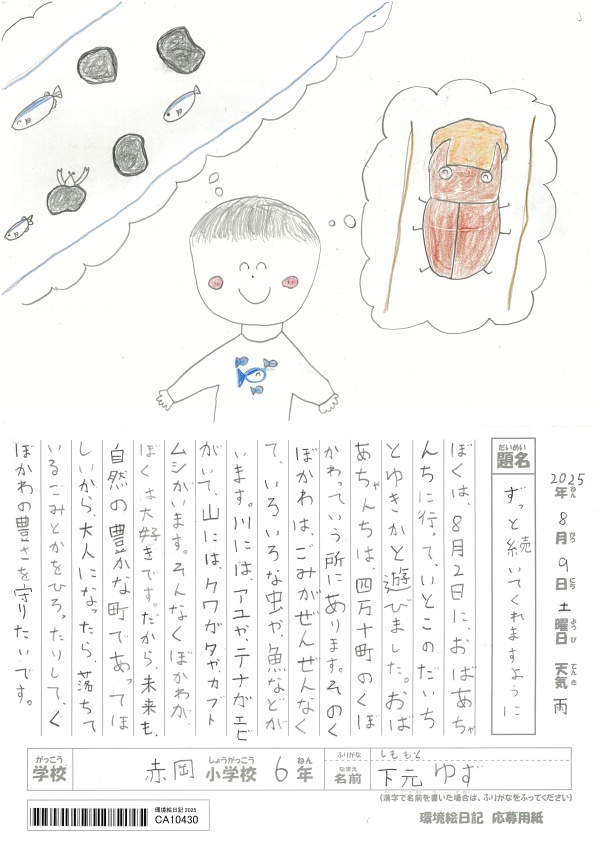 2025年ねん8月がつ9日にち土曜日ようび 天気てんき 雨
だいめい
題名
ずっと続いてくれますように
ぼくは、8月2日に、おばあち
んちに行って、いとこのだいち
とゆきかと遊びました。おば
あちゃんちは、四万十町のくぼ
かわっていう所にあります。そのく
ぼかわは、ごみがぜんぜんなく
て、いろいろな虫や魚などが
います。川には、アユや、テナガエビ
がいて、山には、クワガタや、カブト
ムシがいます。そんなくぼかわが、
ぼくは大好きです。だから、未来も、
自然の豊かな町であってほ
しいから、大人になったら、落ちて
いるごみとかをひろったりして、く
ぼかわの豊さを守りたいです。
がっこう
学校
赤岡
しょうがっこう
小学校
6
ねん
年
ふりがな
しももと
なまえ
名前
下元 ゆず
(漢字で名前を書いた場合は、ふりがなをふってください)
環境絵日記 2025
CA10430
環境絵日記 応募用紙